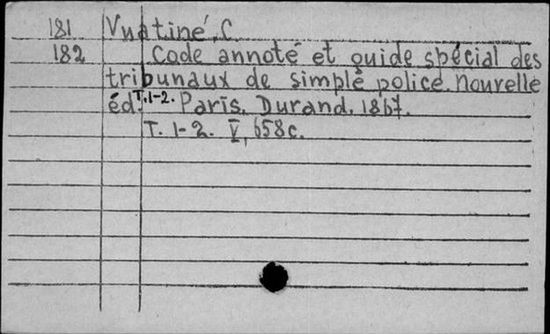 181 Vuatiné, C.
182 Code annoté et guide spécial des
tribunaux de simple police. Nouvelle
éd. T. 1-2. Paris, Durand, 1867.
T. 1-2. V, 658 c.